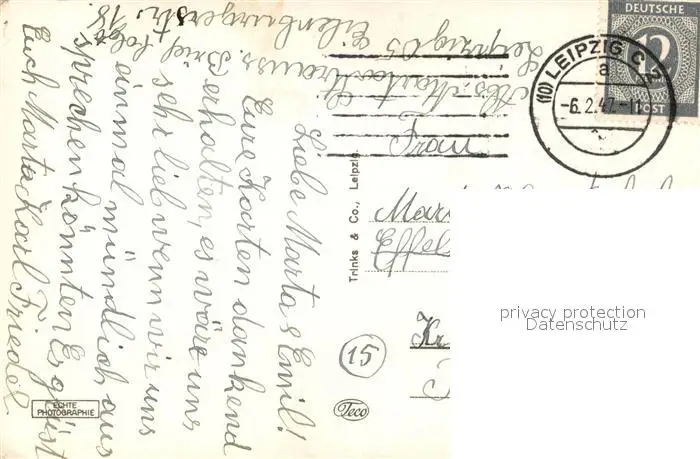 Liebe Marta & Emil!
Eure Karten dankend
erhalten, es wäre uns
sehr lieb wenn wir uns
einmal mündlich aus
sprechen könnten Es grüßt
Euch Marta Karl Friedel
Brief folgt
Abs: Marta Strauss.
Leipzig O5 Eilenburgerstr. 18.
Frau
Mar
Effel
Kr
(15)
DEUTSCHE
12
POST
(10) LEIPZIG C 2
a
-6.2.47.-11
Trinks & Co., Leipzig.
ECHTE
PHOTOGRAPHIE
Teco
privacy protection
Datenschutz